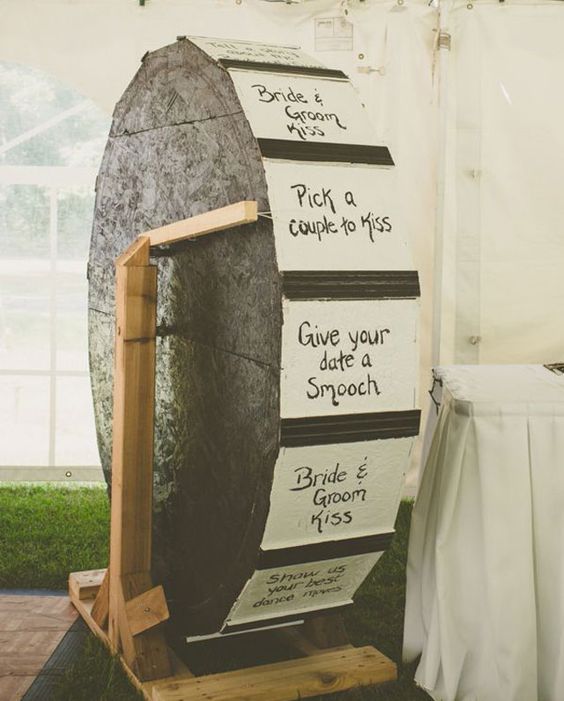 Tell a story
about the
Bride &
Groom
Kiss
Pick a
couple to Kiss
Give your
date a
Smooch
Bride &
Groom
Kiss
Show us
your best
dance moves